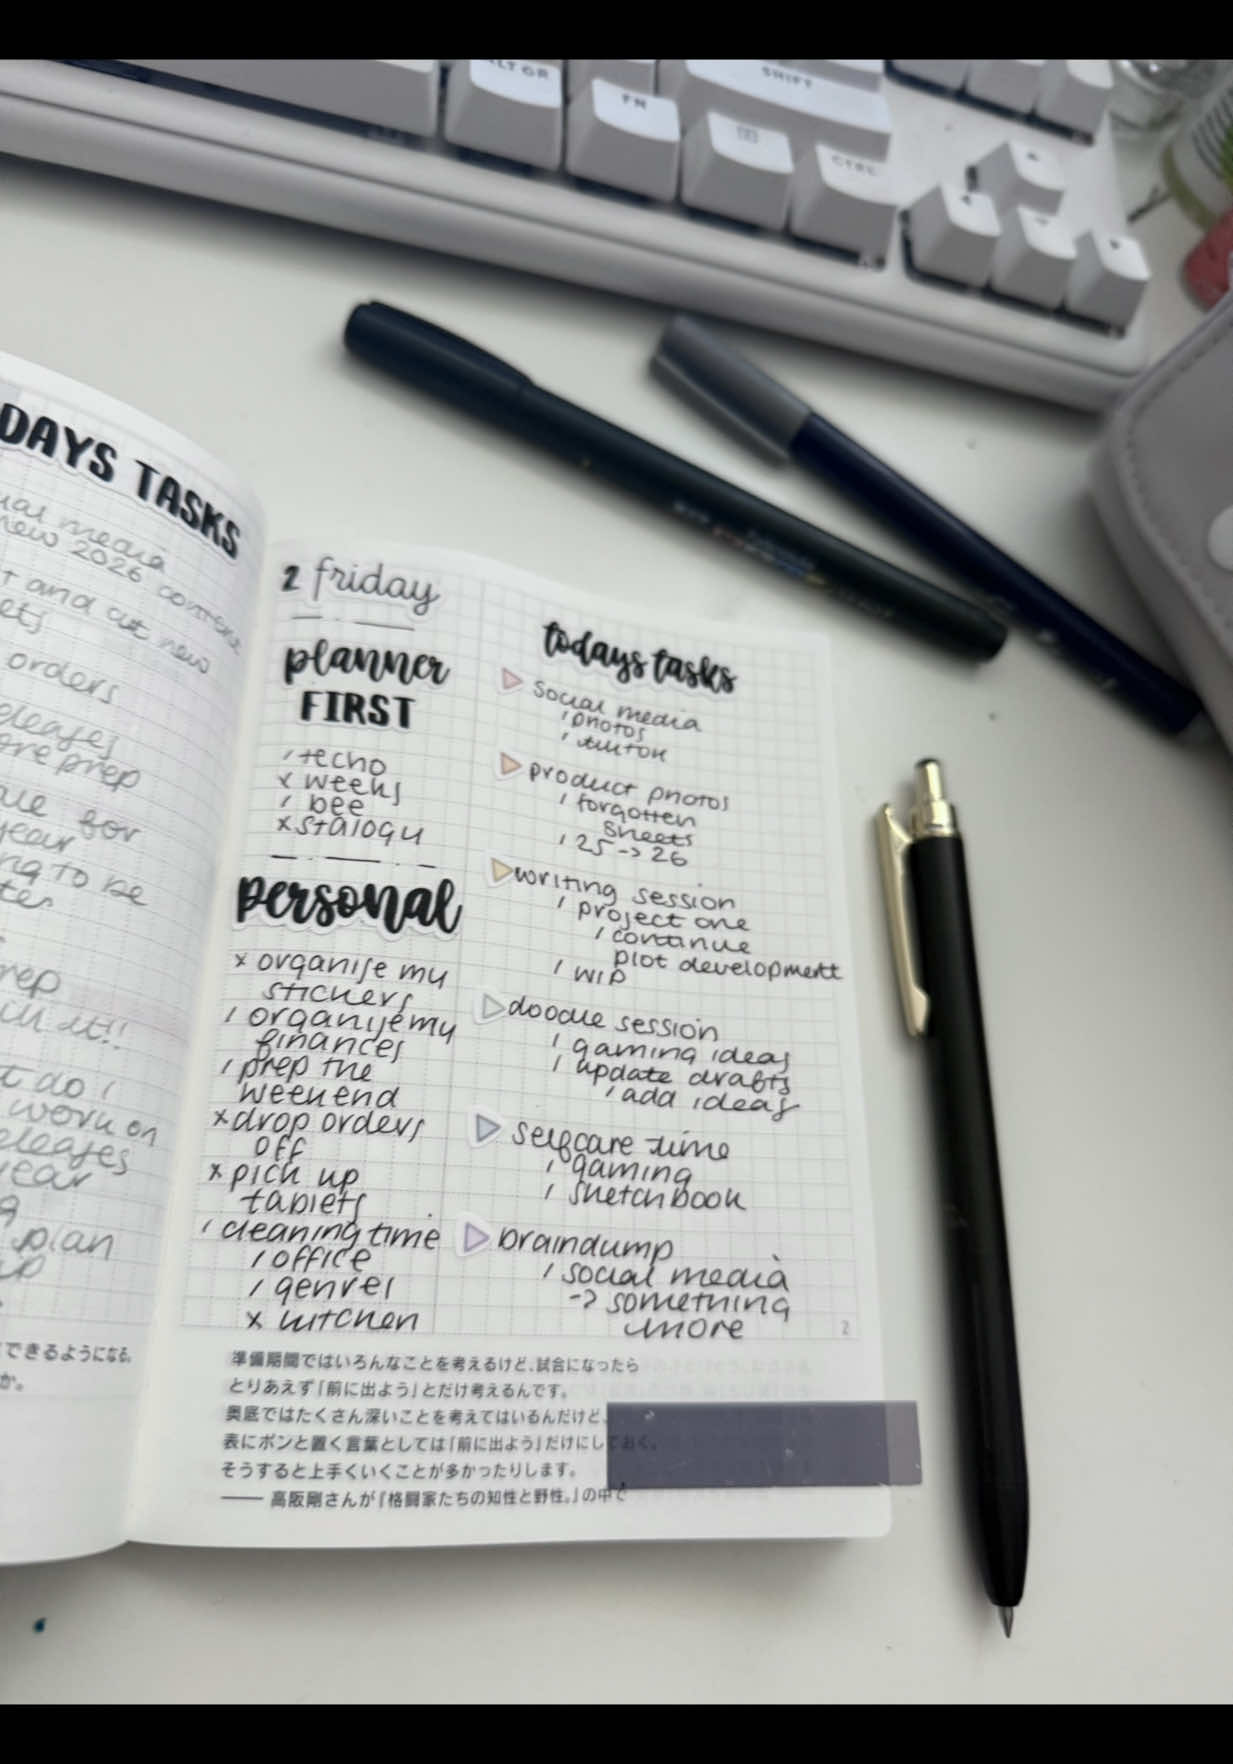 ALT GR
FN
SHIFT
CTRL
DAYS TASKS
media
new 2026
and cut new
orders
prep
for
year
to be
prep
in it!!
do I
work on
year
plan
できるようになる。
か。
2 friday
planner
FIRST
/ techo
x weeks
/ bee
x stalogy
personal
x organise my
stickers
/ organise my
finances
/ prep the
weekend
x drop orders
off
x pick up
tablets
/ cleaning time
/ office
/ genrel
x kitchen
todays tasks
social media
/ photos
/ tiktok
product photos
/ forgotten
sheets
/ 25 -> 26
writing session
/ project one
/ continue
plot development
/ WIP
doodle session
/ gaming ideas
/ update drafts
/ add ideas
selfcare time
/ gaming
/ sketchbook
braindump
/ social media
-> something
more
2
準備期間ではいろんなことを考えるけど、試合になったら
とりあえず「前に出よう」とだけ考えるんです。
奥底ではたくさん深いことを考えてはいるんだけど、
表にポンと置く言葉としては「前に出よう」だけにしておく。
そうすると上手くいくことが多かったりします。
—— 高阪剛さんが『格闘家たちの知性と野性。』の中で